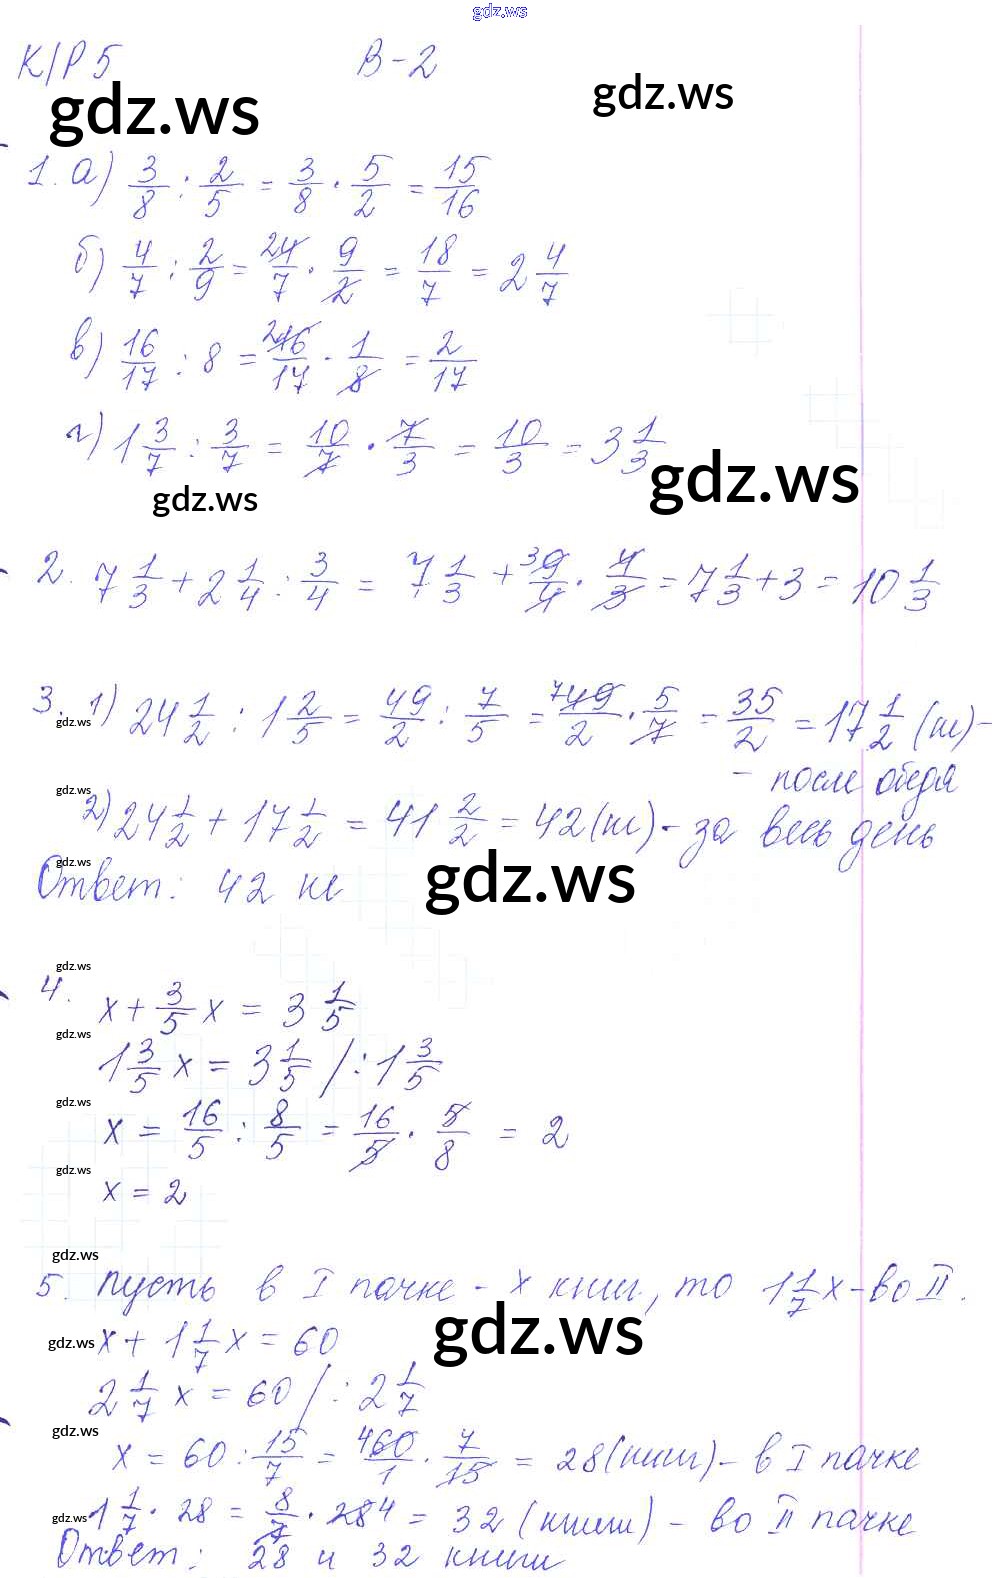 gdz.ws
К/Р 5 В-2
gdz.ws gdz.ws
1. а) 3/8 : 2/5 = 3/8 · 5/2 = 15/16
б) 4/7 : 2/9 = 2 4/7 · 9/2 = 18/7 = 2 4/7
в) 16/17 : 8 = 2 16/17 · 1/8 = 2/17
г) 1 3/7 : 3/7 = 10/7 · 7/3 = 10/3 = 3 1/3
gdz.ws gdz.ws
2. 7 1/3 + 2 1/4 : 3/4 = 7 1/3 + 3 9/4 · 4/3 = 7 1/3 + 3 = 10 1/3
3. 1) 24 1/2 : 1 2/5 = 49/2 : 7/5 = 7 49/2 · 5/7 = 35/2 = 17 1/2 (м) -
gdz.ws
- после обеда
gdz.ws
2) 24 1/2 + 17 1/2 = 41 2/2 = 42 (м) - за весь день
gdz.ws
Ответ: 42 м
gdz.ws
gdz.ws
4. x + 3/5 x = 3 1/5
gdz.ws
1 3/5 x = 3 1/5 / : 1 3/5
gdz.ws
x = 16/5 : 8/5 = 16/5 · 5/8 = 2
gdz.ws
x = 2
gdz.ws
5. пусть в I пачке - x книг, то 1 1/7 x - во II.
gdz.ws
gdz.ws x + 1 1/7 x = 60
2 1/7 x = 60 / : 2 1/7
gdz.ws
x = 60 : 15/7 = 4 60/1 · 7/15 = 28 (книг) - в I пачке
gdz.ws 1 1/7 · 28 = 8/7 · 28 4 = 32 (книги) - во II пачке
Ответ: 28 и 32 книги